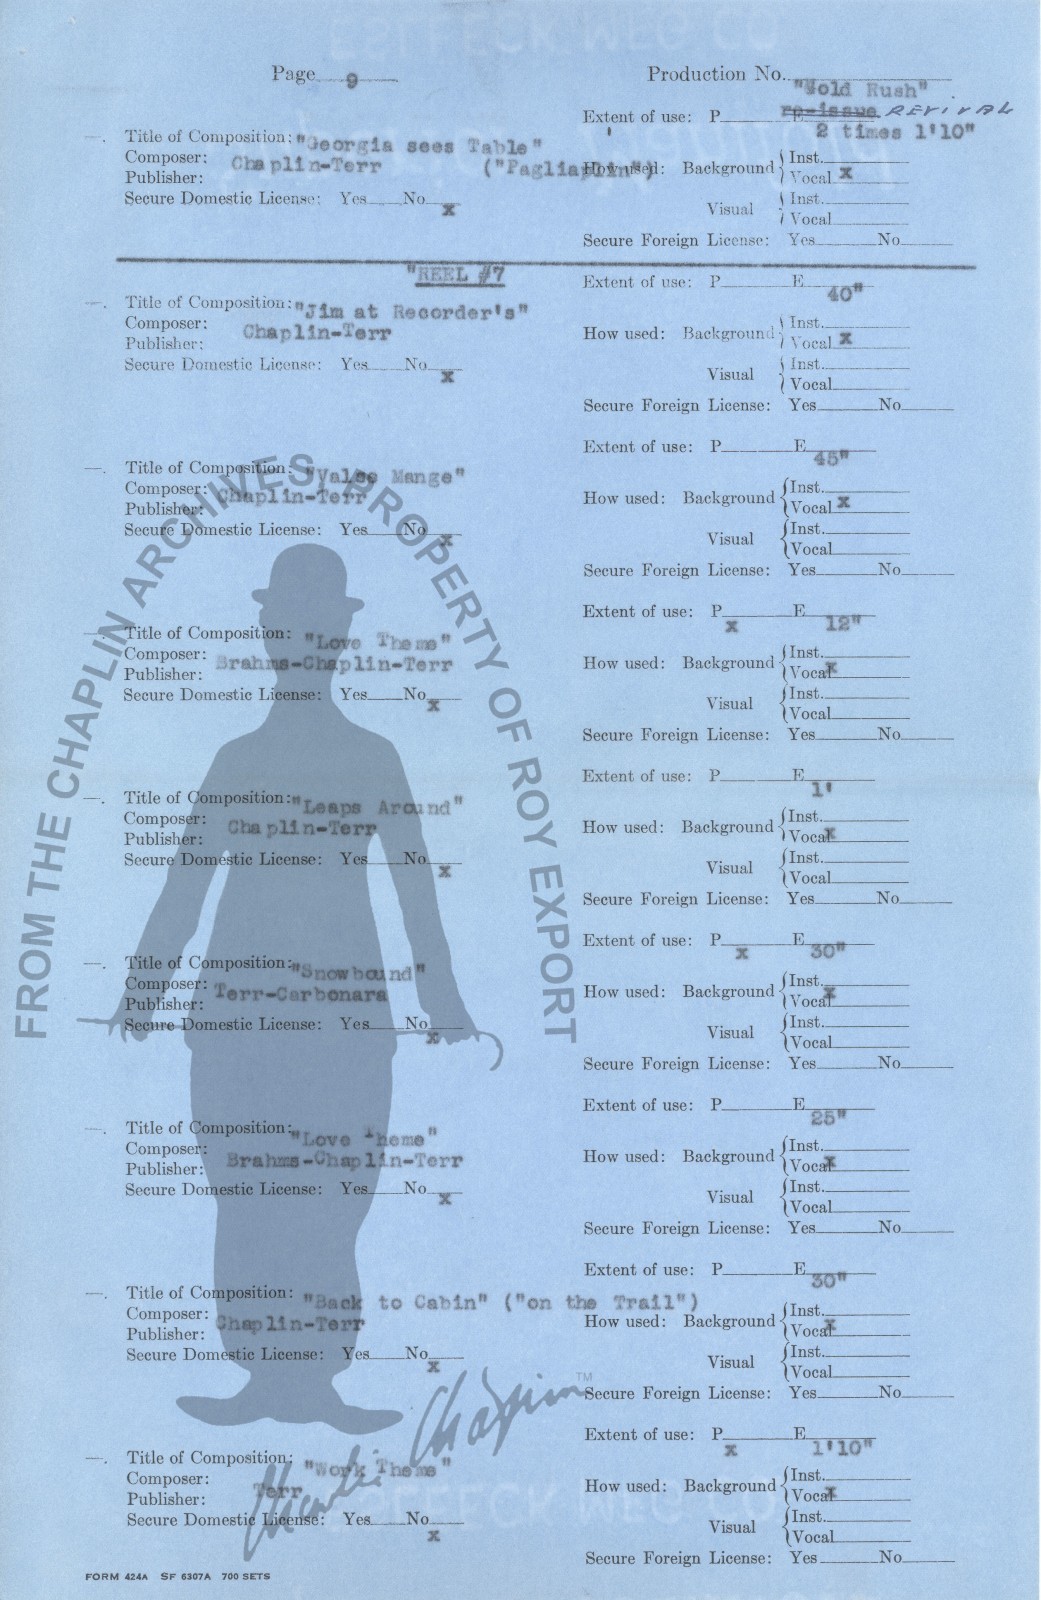 Page 9 Production No.
"Gold Rush"
Extent of use: P re-issue REVIVAL
2 times 1'10"
Title of Composition: "Georgia sees Table"
Composer: Chaplin-Terr
Publisher:
How used: Background Inst.
Vocal x
Secure Domestic License: Yes No x
Visual Inst.
Vocal
Secure Foreign License: Yes No
"REEL #7
Extent of use: P E 40"
Title of Composition: "Jim at Recorder's"
Composer: Chaplin-Terr
Publisher:
How used: Background Inst.
Vocal x
Secure Domestic License: Yes No x
Visual Inst.
Vocal
Secure Foreign License: Yes No
Extent of use: P E 45"
Title of Composition: "Valse Mange"
Composer: Chaplin-Terr
Publisher:
How used: Background Inst.
Vocal x
Secure Domestic License: Yes No x
Visual Inst.
Vocal
Secure Foreign License: Yes No
Extent of use: P x E 12"
Title of Composition: "Love Theme"
Composer: Brahms-Chaplin-Terr
Publisher:
How used: Background Inst.
Vocal x
Secure Domestic License: Yes No x
Visual Inst.
Vocal
Secure Foreign License: Yes No
Extent of use: P E 1'
Title of Composition: "Leaps Around"
Composer: Chaplin-Terr
Publisher:
How used: Background Inst.
Vocal x
Secure Domestic License: Yes No x
Visual Inst.
Vocal
Secure Foreign License: Yes No
Extent of use: P x E 30"
Title of Composition: "Snowbound"
Composer: Terr-Carbonara
Publisher:
How used: Background Inst.
Vocal x
Secure Domestic License: Yes No x
Visual Inst.
Vocal
Secure Foreign License: Yes No
Extent of use: P E 25"
Title of Composition: "Love Theme"
Composer: Brahms-Chaplin-Terr
Publisher:
How used: Background Inst.
Vocal x
Secure Domestic License: Yes No x
Visual Inst.
Vocal
Secure Foreign License: Yes No
Extent of use: P E 30"
Title of Composition: "Back to Cabin" ("on the Trail")
Composer: Chaplin-Terr
Publisher:
How used: Background Inst.
Vocal x
Secure Domestic License: Yes No x
Visual Inst.
Vocal
Secure Foreign License: Yes No
Extent of use: P x E 1'10"
Title of Composition: "Work Theme"
Composer: Terr
Publisher:
How used: Background Inst.
Vocal x
Secure Domestic License: Yes No x
Visual Inst.
Vocal
Secure Foreign License: Yes No
FORM 424A SF 6307A 700 SETS
FROM THE CHAPLIN ARCHIVES, PROPERTY OF ROY EXPORT
Charlie Chaplin TM